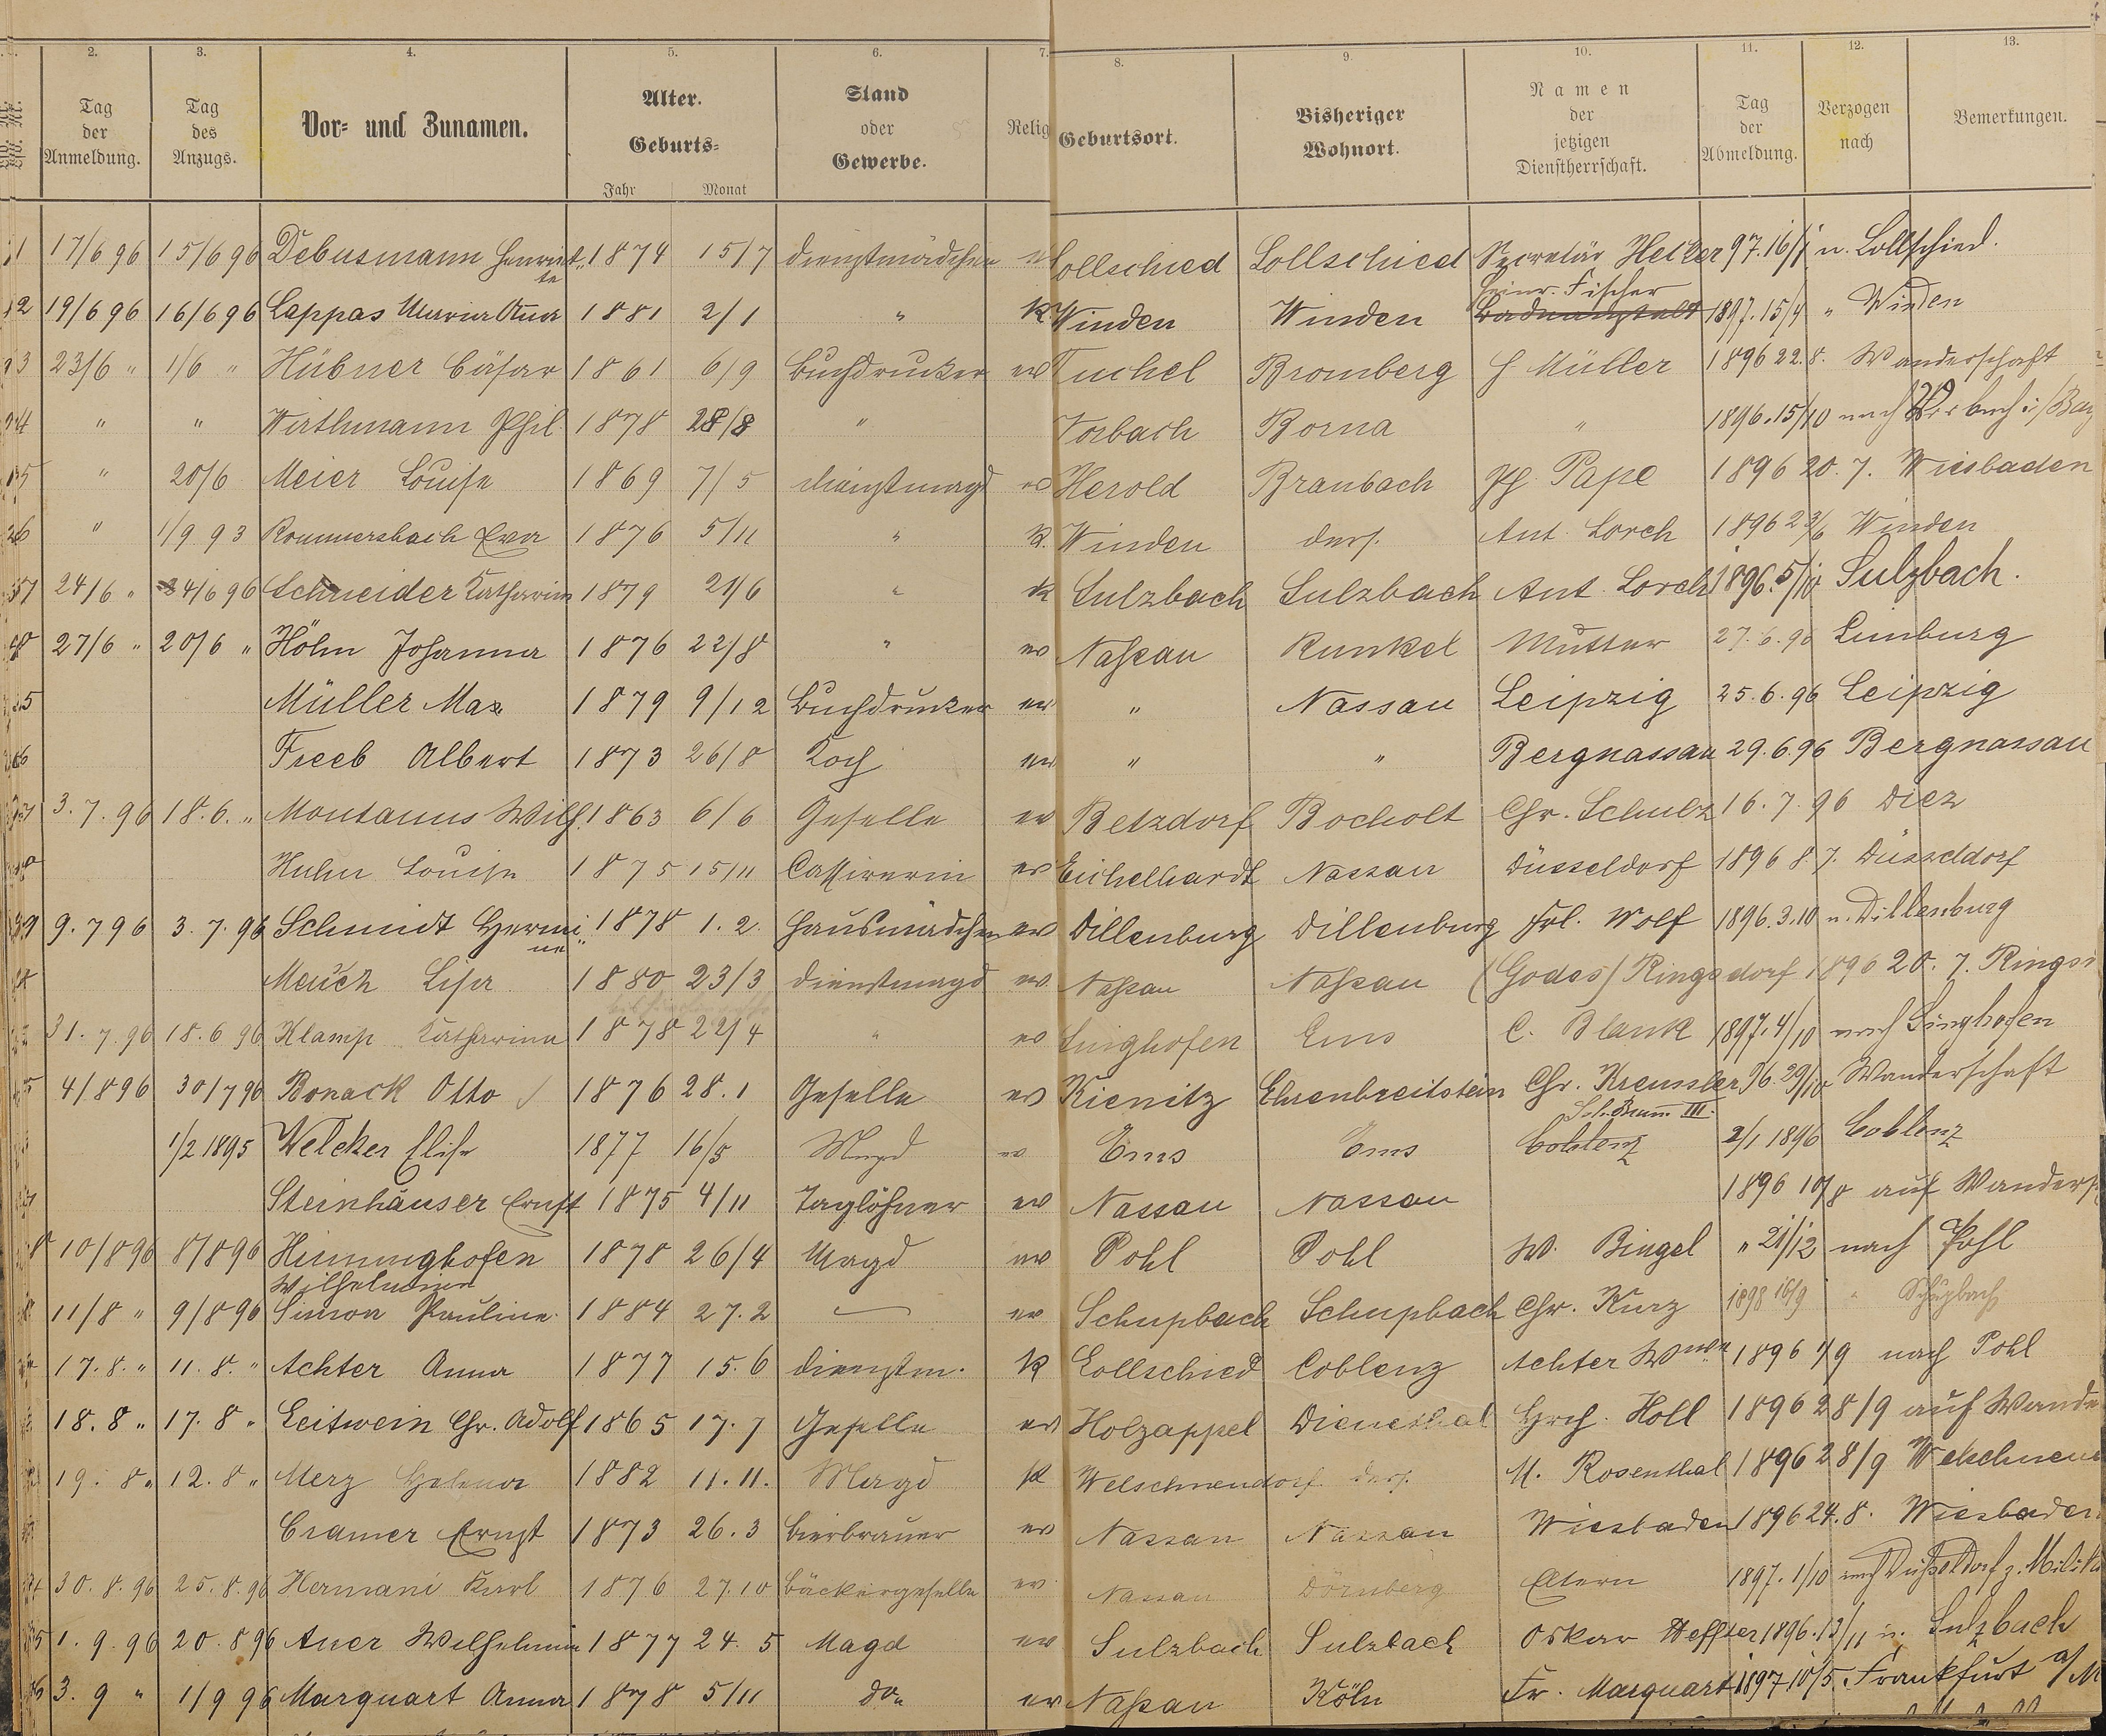 2. 3. 4. 5. 6. 7. 8. 9. 10. 11. 12. 13.
Tag der Anmeldung. Tag des Anzugs. Vor- und Zunamen. Alter. Geburts- Jahr Monat Stand oder Gewerbe. Relig Geburtsort. Bisheriger Wohnort. Namen der jetzigen Dienstherrschaft. Tag der Abmeldung. Verzogen nach Bemerkungen.
17/6 96 15/6 96 Debusmann Henriette 1874 15/7 Dienstmädchen Lollschied Lollschied Secretär Helker 97. 16/1 n. Lollschied.
19/6 96 16/6 96 Lappas Maria Anna 1881 2/1 " K Winden Winden Heinr. Fischer Badeanstalt 1897. 15/4 " Winden
23/6 " 1/6 " Hübner Cäsar 1861 6/9 Buchdrucker ev Tuchel Bromberg H Müller 1896 22.8. Wanderschaft
" " Wirthmann Phil. 1878 28/8 " Vorbach Borna " 1896. 15/10 nach
" 20/6 Meier Louise 1869 7/5 Dienstmagd ev Herold Braubach Ph Pape 1896 20.7. Wiesbaden
" 1/9 93 Rommersbach Eva 1876 5/11 " K. Winden ders. Ant. Lorch 1896 Winden
24/6 " 24/6 96 Schneider Katharina 1879 21/6 " K Sulzbach Sulzbach Ant. Lorch 1896. 5/10 Sulzbach.
27/6 " 20/6 " Höhn Johanna 1876 22/8 " ev Naßau Runkel Mutter 27.6.96 Limburg
Müller Max 1879 9/12 Buchdrucker ev " Nassau Leipzig 25.6.96 Leipzig
Freeb Albert 1873 26/8 Koch ev " " Bergnassau 29.6.96 Bergnassau
3.7.96 18.6. " Montanus Wilh. 1863 6/6 Geselle ev Betzdorf Bocholt Chr. Schulz 16.7.96 Diez
Huhn Louise 1875 15/11 Cassirerin ev Eichelhardt Nassau Düsseldorf 1896 8.7. Düsseldorf
9.7 96 3.7.96 Schmidt Hermine 1878 1.2. Hausmädchen ev Dillenburg Dillenburg Frl. Wolf 1896. 3.10 n. Dillenburg
Mauch Lisa 1880 23/3 Dienstmagd ev. Naßau Naßau (Godes) Ringsdorf 1896 20.7. Rings
31.7.96 18.6 96 Klamp Katharina 1878 22/4 " ev Singhofen Ems C. Blank 1897. 4/10 nach Singhofen
4/8 96 30/7 96 Bonack Otto 1876 28.1 Geselle ev Kienitz Ehrenbreitstein Chr. Kreussler 96. 29/10 Wanderschaft
1/2 1895 Welcker Elise 1877 16/5 Magd ev Ems Ems III. Coblenz 2/1 1896 Coblenz
Steinhäuser Ernst 1875 4/11 Taglöhner ev Nassau Nassau 1896 10/8 auf Wandersch
10/8 96 8/8 96 Himmighofen Wilhelmine 1878 26/4 Magd ev Pohl Pohl W. Bingel " 21/12 nach Pohl
11/8 " 9/8 96 Simon Pauline 1884 27.2 — ev Schupbach Schupbach Chr. Kurz 1898 16/9 " Schupbach
17.8. " 11.8. " Achter Anna 1877 15.6 Dienstm. K Lollschied Coblenz Achter Wwe 1896 1/9 nach Pohl
18.8 " 17.8 " Leitwein Chr. Adolf 1865 17.7 Geselle ev Holzappel Dienethal Hrch. Holl 1896 28/9 auf Wande
19.8 " 12.8 " Merz Helena 1882 11.11. Magd K Welschneudorf ders. M. Rosenthal 1896 28/9 Welschneu
Cramer Ernst 1873 26.3 Bierbrauer ev Nassau Nassau Wiesbaden 1896 24.8. Wiesbaden
30.8.96 25.8.96 Hermani Karl 1876 27.10 Bäckergeselle ev Nassau Dörnberg Eltern 1897. 1/10 nach Düsseldorf z. Militä
1.9.96 20.8 96 Auer Wilhelmine 1877 24.5 Magd ev Sulzbach Sulzbach Oskar Heffter 1896. 13/11 n. Sulzbach
3.9 " 1/9 96 Marquart Anna 1878 5/11 do ev Naßau Köln Fr. Marquart 1897 10/5. Frankfurt a/M